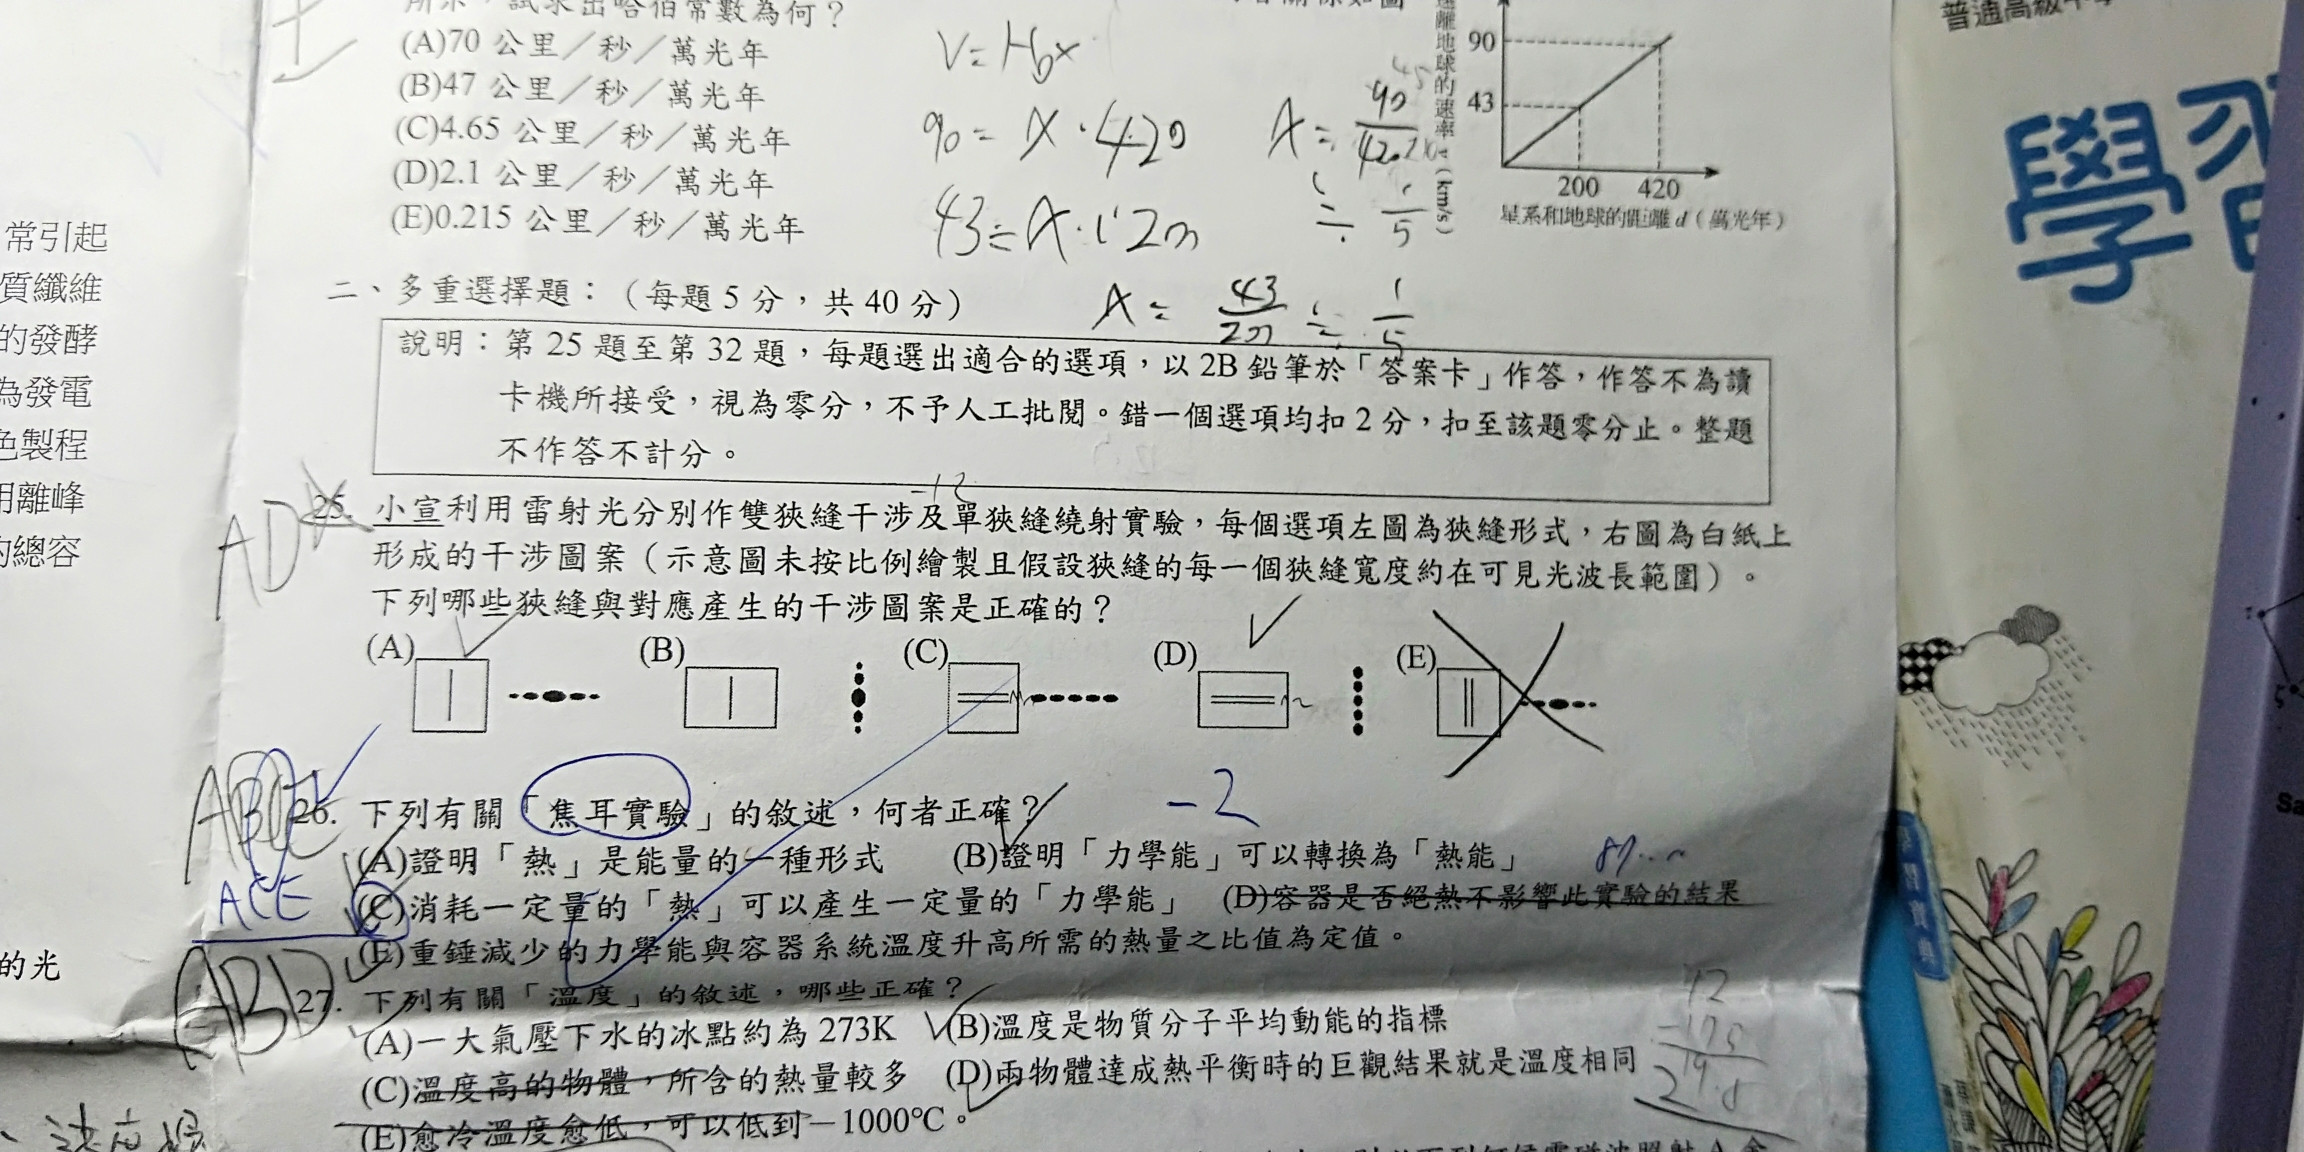 試求出哈伯常數為何？
(A)70 公里／秒／萬光年
(B)47 公里／秒／萬光年
(C)4.65 公里／秒／萬光年
(D)2.1 公里／秒／萬光年
(E)0.215 公里／秒／萬光年
離地球的速率
(km/s)
90
43
200 420
星系和地球的距離 d（萬光年）
90 = X · 420
二、多重選擇題：（每題 5 分，共 40 分）
說明：第 25 題至第 32 題，每題選出適合的選項，以 2B 鉛筆於「答案卡」作答，作答不為讀
卡機所接受，視為零分，不予人工批閱。錯一個選項均扣 2 分，扣至該題零分止。整題
不作答不計分。
AD
25. 小宣利用雷射光分別作雙狹縫干涉及單狹縫繞射實驗，每個選項左圖為狹縫形式，右圖為白紙上
形成的干涉圖案（示意圖未按比例繪製且假設狹縫的每一個狹縫寬度約在可見光波長範圍）。
下列哪些狹縫與對應產生的干涉圖案是正確的？
(A) (B) (C) (D) (E)
-2
26. 下列有關「焦耳實驗」的敘述，何者正確？
(A)證明「熱」是能量的一種形式 (B)證明「力學能」可以轉換為「熱能」
ACE
(C)消耗一定量的「熱」可以產生一定量的「力學能」 (D)容器是否絕熱不影響此實驗的結果
(E)重錘減少的力學能與容器系統溫度升高所需的熱量之比值為定值。
ABD
27. 下列有關「溫度」的敘述，哪些正確？
(A)一大氣壓下水的冰點約為 273K (B)溫度是物質分子平均動能的指標
(C)溫度高的物體，所含的熱量較多 (D)兩物體達成熱平衡時的巨觀結果就是溫度相同
(E)愈冷溫度愈低，可以低到－1000℃。
常引起
質纖維
的發酵
為發電
色製程
用離峰
的總容
的光
普通高級中
學習